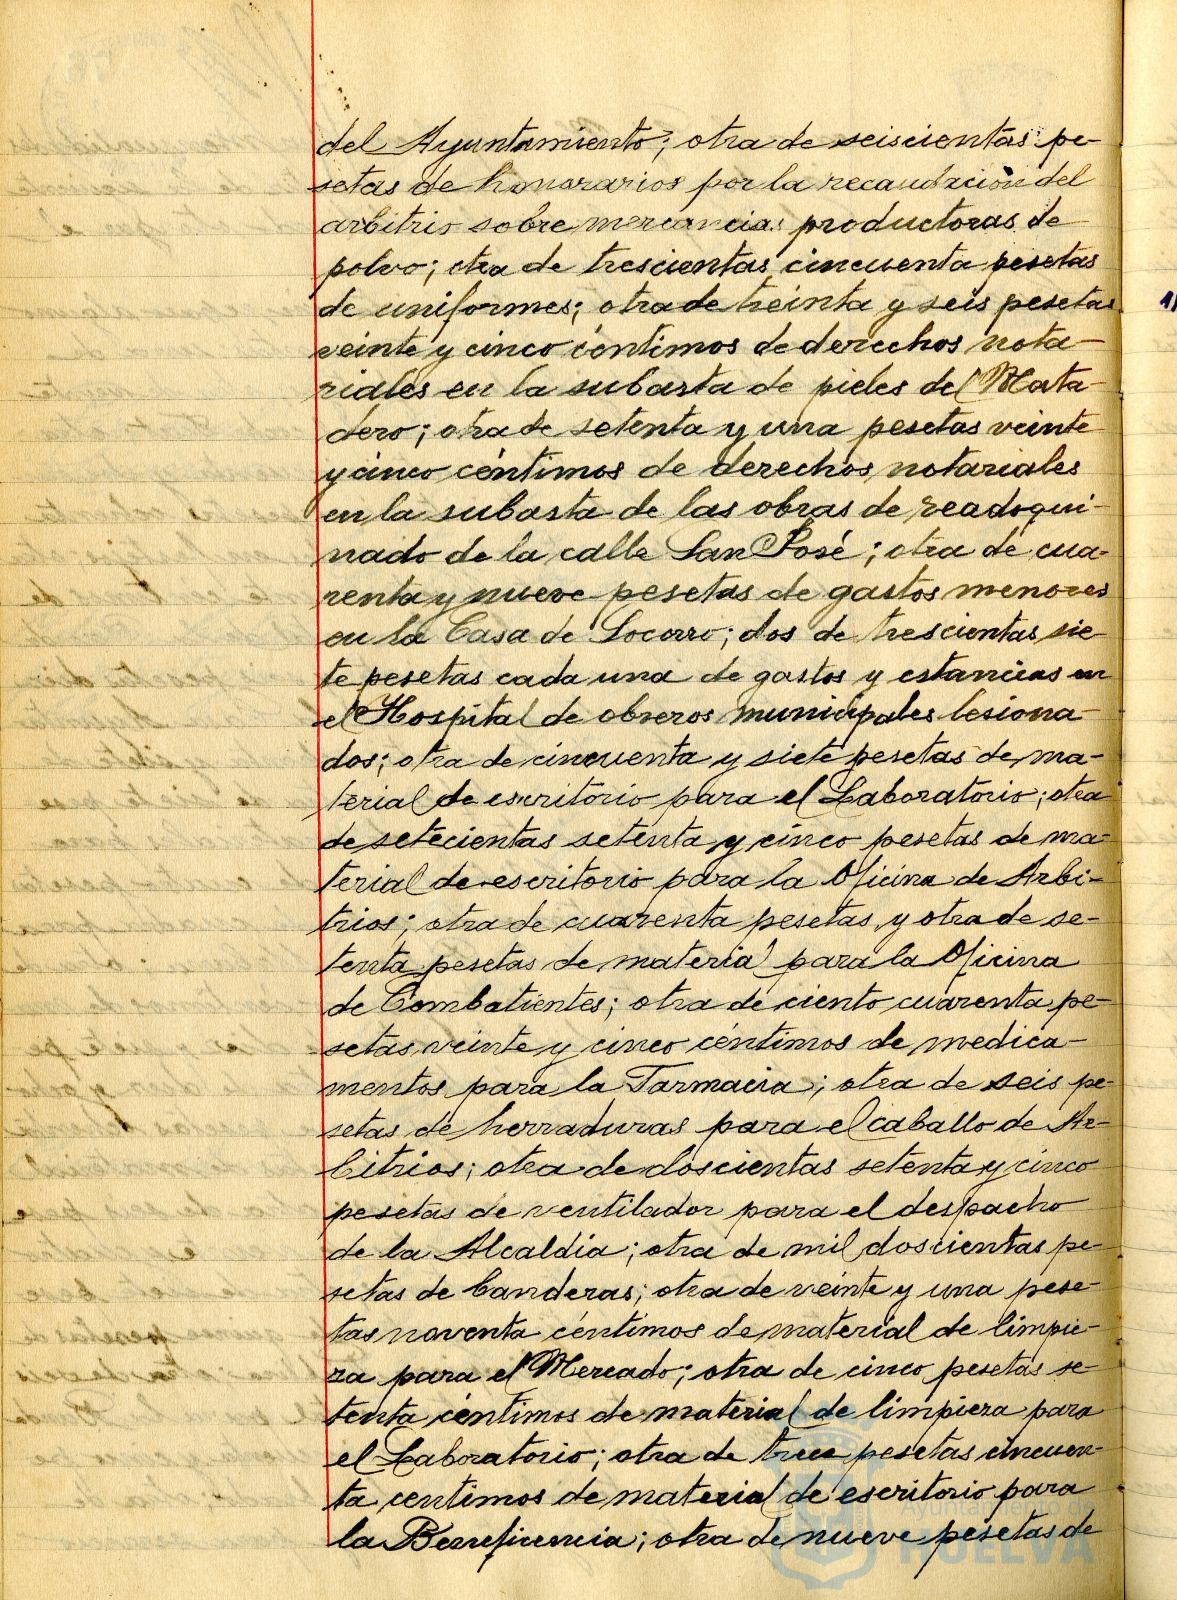 del Ayuntamiento; otra de seiscientas pe-
setas de honorarios por la recaudación del
arbitrio sobre mercancias productoras de
polvo; otra de trescientas cincuenta pesetas
de uniformes; otra de treinta y seis pesetas
veinte y cinco céntimos de derechos nota-
riales en la subasta de pieles del Mata-
dero; otra de setenta y una pesetas veinte
y cinco céntimos de derechos notariales
en la subasta de las obras de readoqui-
nado de la calle San José; otra de cua-
renta y nueve pesetas de gastos menores
en la Casa de Socorro; dos de trescientas sie-
te pesetas cada una de gastos y estancias en
el Hospital de obreros municipales lesiona-
dos; otra de cincuenta y siete pesetas de ma-
terial de escritorio para el Laboratorio; otra
de setecientas setenta y cinco pesetas de ma-
terial de escritorio para la Oficina de Arbi-
trios; otra de cuarenta pesetas y otra de se-
tenta pesetas de material para la Oficina
de Combatientes; otra de ciento cuarenta pe-
setas veinte y cinco céntimos de medica-
mentos para la Farmacia; otra de seis pe-
setas de herraduras para el caballo de Ar-
bitrios; otra de doscientas setenta y cinco
pesetas de ventilador para el despacho
de la Alcaldia; otra de mil doscientas pe-
setas de banderas; otra de veinte y una pese-
tas noventa céntimos de material de limpie-
za para el Mercado; otra de cinco pesetas se-
tenta céntimos de material de limpieza para
el Laboratorio; otra de tres pesetas cincuen-
ta centimos de material de escritorio para
la Beneficencia; otra de nueve pesetas de
Ayuntamiento de
HUELVA